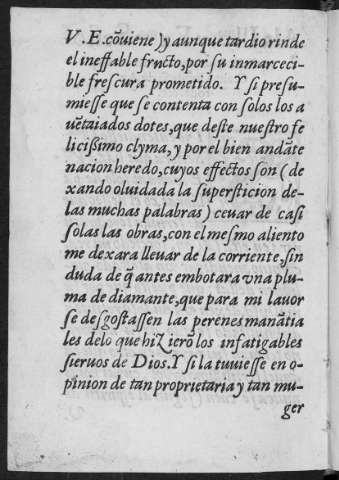 V. E. cōuiene) y aunque tardio rinde
el ineffable fructo, por su inmarceci-
ble frescura prometido. Y si presu-
miesse que se contenta con solos los a
uētaiados dotes, que deste nuestro fe
licißimo clyma, y por el bien andāte
nacion heredo, cuyos effectos son (de
xando oluidada la supersticion de-
las muchas palabras) ceuar de casi
solas las obras, con el mesmo aliento
me dexara lleuar de la corriente, sin
duda de q̄ antes embotara vna plu-
ma de diamante, que para mi lauor
se desgostassen las perenes manātia
les delo que hizierō los infatigables
sieruos de Dios. Y si la tuuiesse en o-
pinion de tan proprietaria y tan mu-
ger